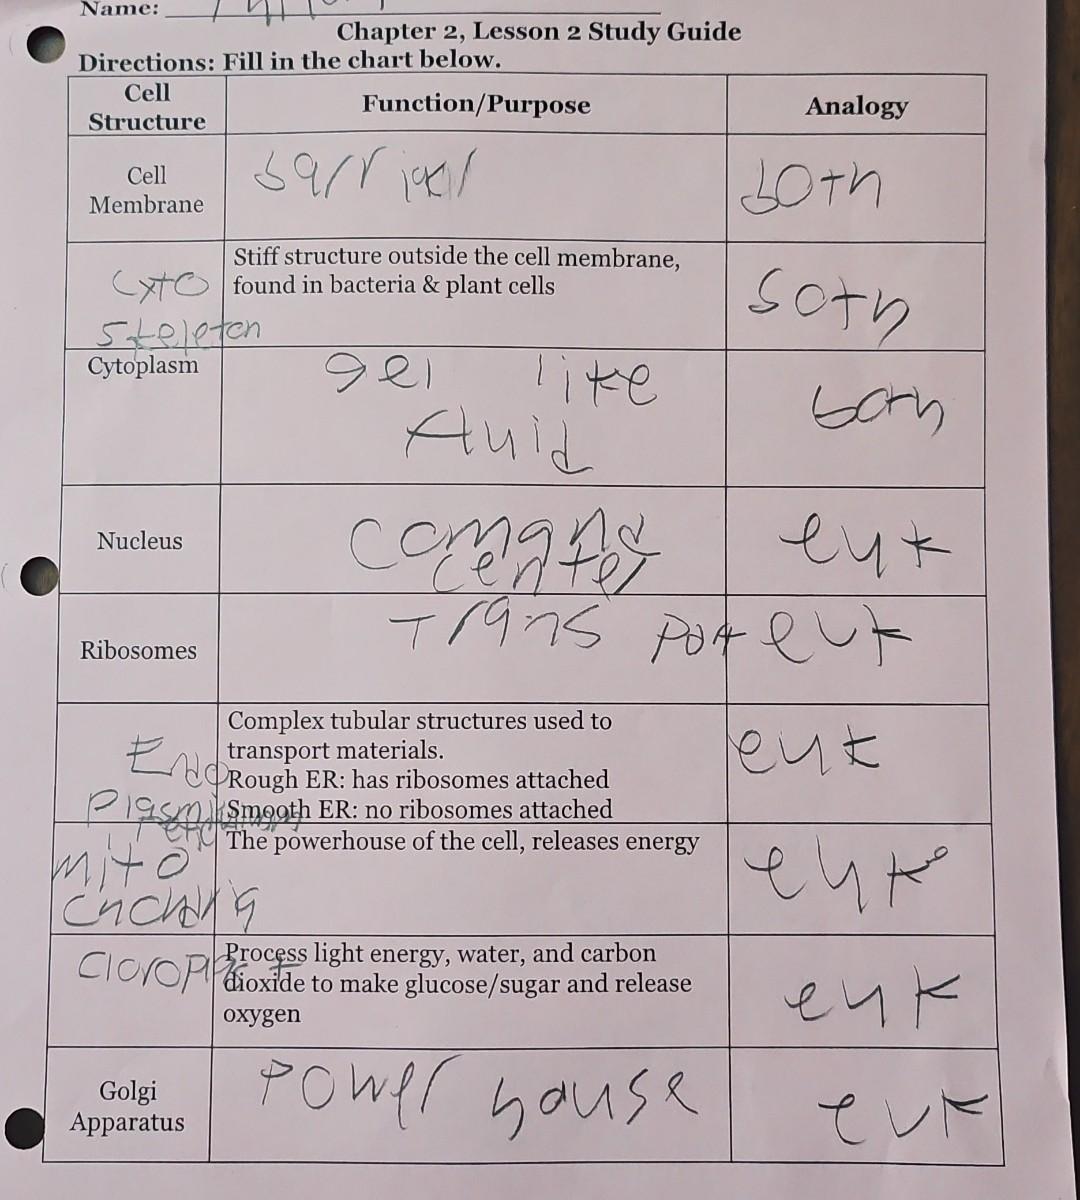 Name:
Chapter 2, Lesson 2 Study Guide
Directions: Fill in the chart below.
Cell
Structure
Function/Purpose
Analogy
Cell
Membrane
both
Cyto
Skeleton
Stiff structure outside the cell membrane,
found in bacteria & plant cells
both
Cytoplasm
gel like
fluid
both
Nucleus
Comand
center
euk
Ribosomes
Trans port
euk
Endo
Plasmic
Complex tubular structures used to
transport materials.
Rough ER: has ribosomes attached
Smooth ER: no ribosomes attached
euk
Mito
The powerhouse of the cell, releases energy
euk
Process light energy, water, and carbon
dioxide to make glucose/sugar and release
oxygen
euk
Golgi
Apparatus
Power house
euk